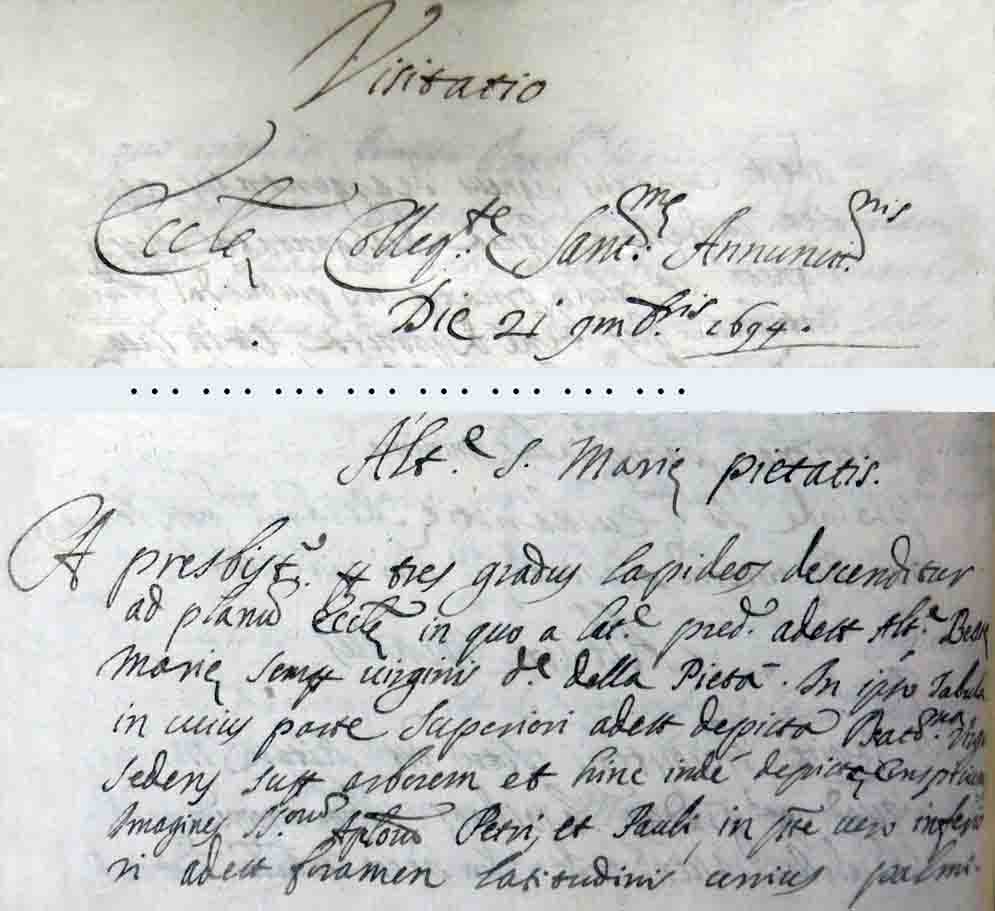 Visitatio
Eccłę Colleg.te Sant.mę Annunciat.nis
Die 21 9mbris 1694.
... ... ... ... ... ... ... ...
Alt.e S. Marię pietatis.
A presbist. ꝑ tres gradus lapideos descenditur
ad planũ Eccłę in quo a lat.e pred. adest Alt.e Beatę
Marię semꝑ virginis d.e della Pietà. In ipso Tabula
in cuius parte superiori adest depicta Beat.ma Virgo
sedens suꝑ arborem et hinc inde depictę
Imagines SS.orum Aptõlorũ Petri, et Pauli, in pte vero inferio
ri adest foramen latitudinis unius palmi.